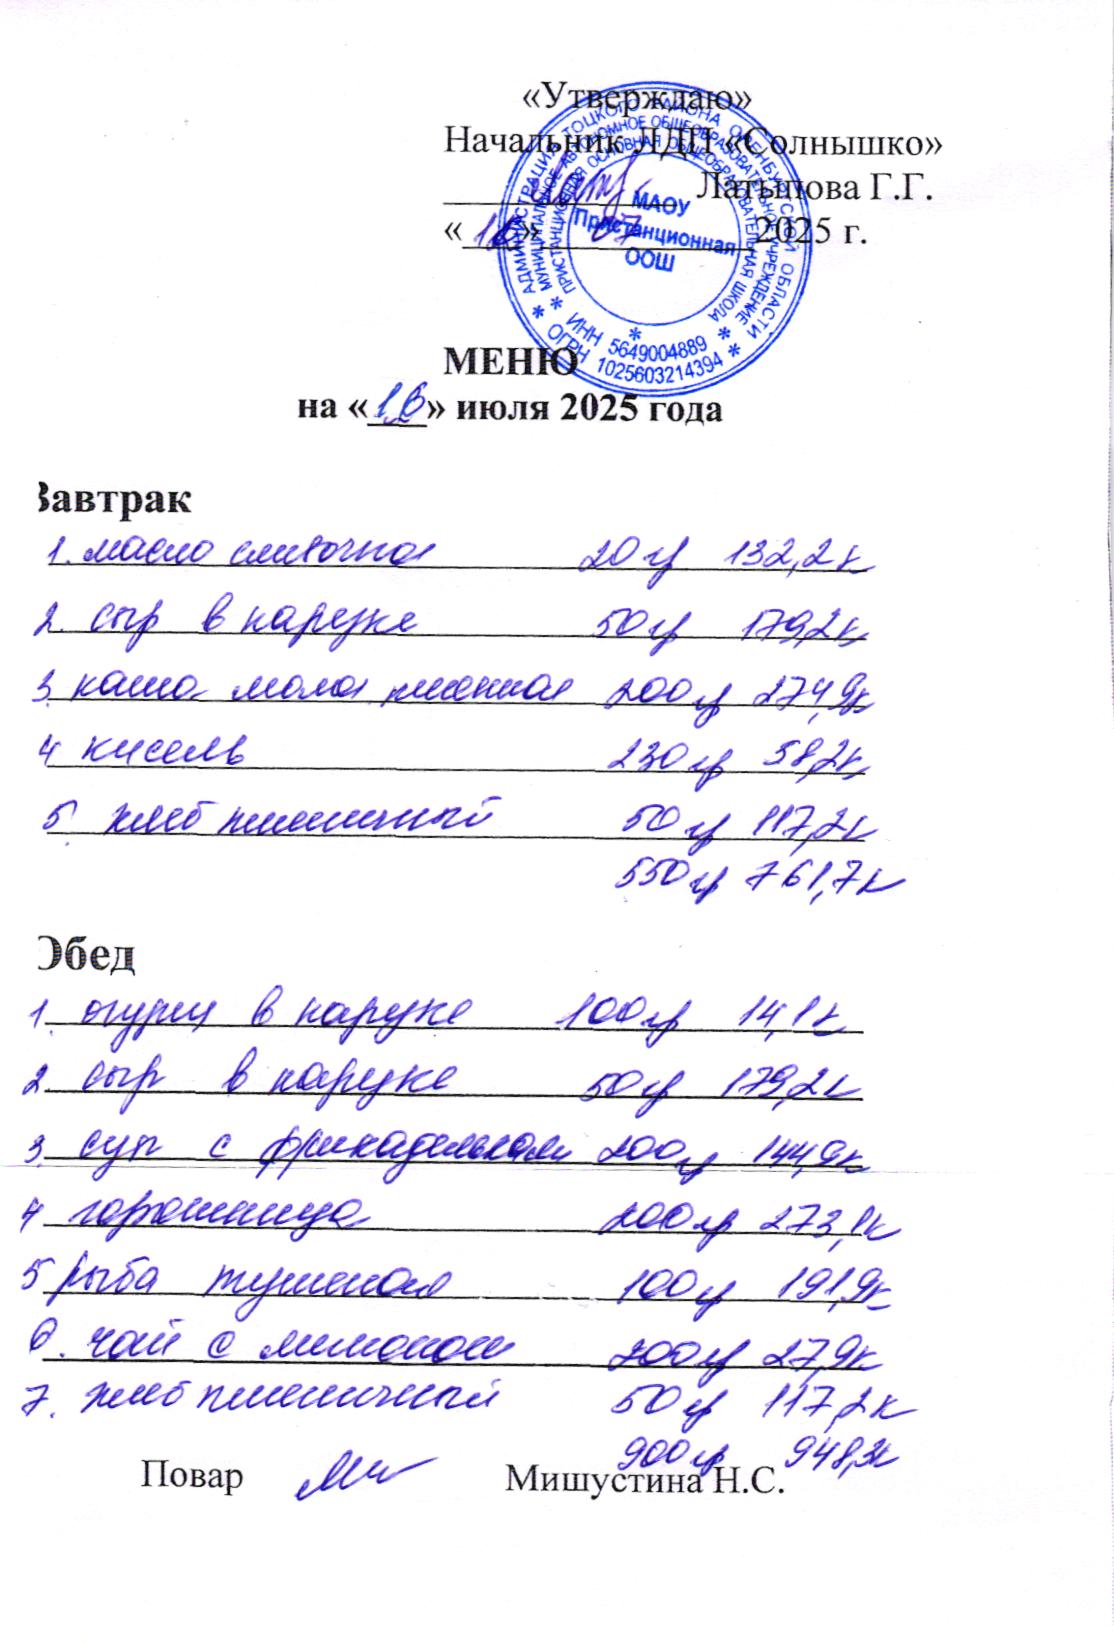 «Утверждаю»
Начальник ЛДП «Солнышко»
Латыпова Г.Г.
« » 07 2025 г.
АДМИНИСТРАЦИЯ ТОЦКОГО РАЙОНА ОРЕНБУРГСКОЙ ОБЛАСТИ
МУНИЦИПАЛЬНОЕ АВТОНОМНОЕ ОБЩЕОБРАЗОВАТЕЛЬНОЕ УЧРЕЖДЕНИЕ
ПРИСТАНЦИОННАЯ ОСНОВНАЯ ОБЩЕОБРАЗОВАТЕЛЬНАЯ ШКОЛА
МАОУ
Пристанционная
ООШ
ИНН 5649004889
ОГРН 1025603214394
МЕНЮ
на « » июля 2025 года
Завтрак
1. масло сливочное 20 гр 132,2к
2. сыр в нарезке 50 гр 179,2к
3. каша молоч пшенная 200 гр 274,9к
4 кисель 230 гр 58,2к
5. хлеб пшеничный 50 гр 117,2к
550 гр 761,7к
Обед
1. огурец в нарезке 100 гр 14,1к
2 сыр в нарезке 50 гр 179,2к
3. суп с фрикадельками 200 гр 144,9к
4 горошница 200 гр 273,1к
5 рыба тушеная 100 гр 191,9к
6. чай с лимоном 200 гр 27,9к
7. хлеб пшеничный 50 гр 117,2к
900 гр 948,3к
Повар Мишустина Н.С.